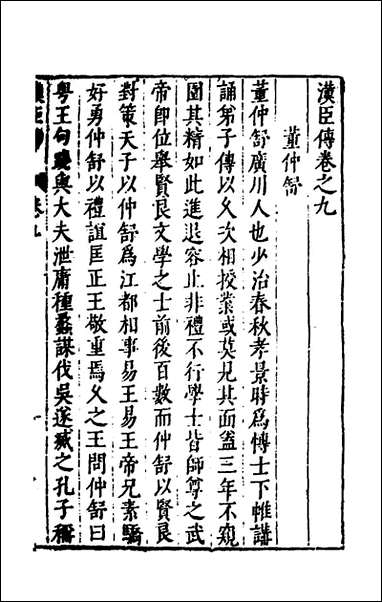 漢臣傳卷之九
董仲舒
董仲舒廣川人也少治春秋孝景時爲博士下帷講
誦弟子傳以久次相授業或莫見其面蓋三年不窺
園其精如此進退容止非禮不行學士皆師尊之武
帝即位舉賢良文學之士前後百數而仲舒以賢良
對策天子以仲舒爲江都相事易王易王帝兄素驕
好勇仲舒以禮誼匡正王敬重焉久之王問仲舒曰
粤王句踐與大夫泄庸種蠡謀伐吳遂滅之孔子稱
漢臣 卷九